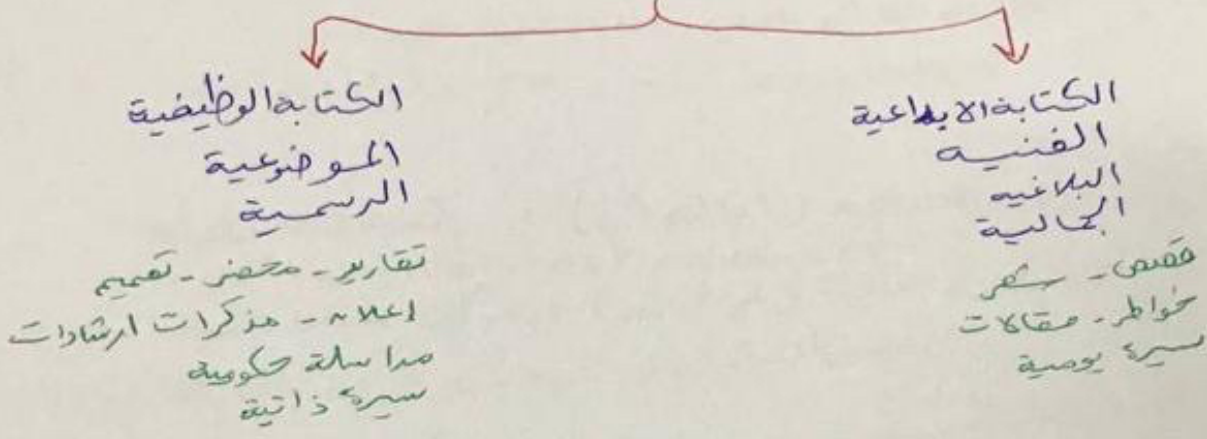 الكتابة الابداعية
الفنيه
البلاغيه
الجمالية
قصص - شعر
خواطر - مقالات
سيرة يومية
الكتابة الوظيفية
الموضوعية
الرسمية
تقارير - محضر - تعميم
إعلان - مذكرات ارشادات
مراسلة حكومية
سيرة ذاتية